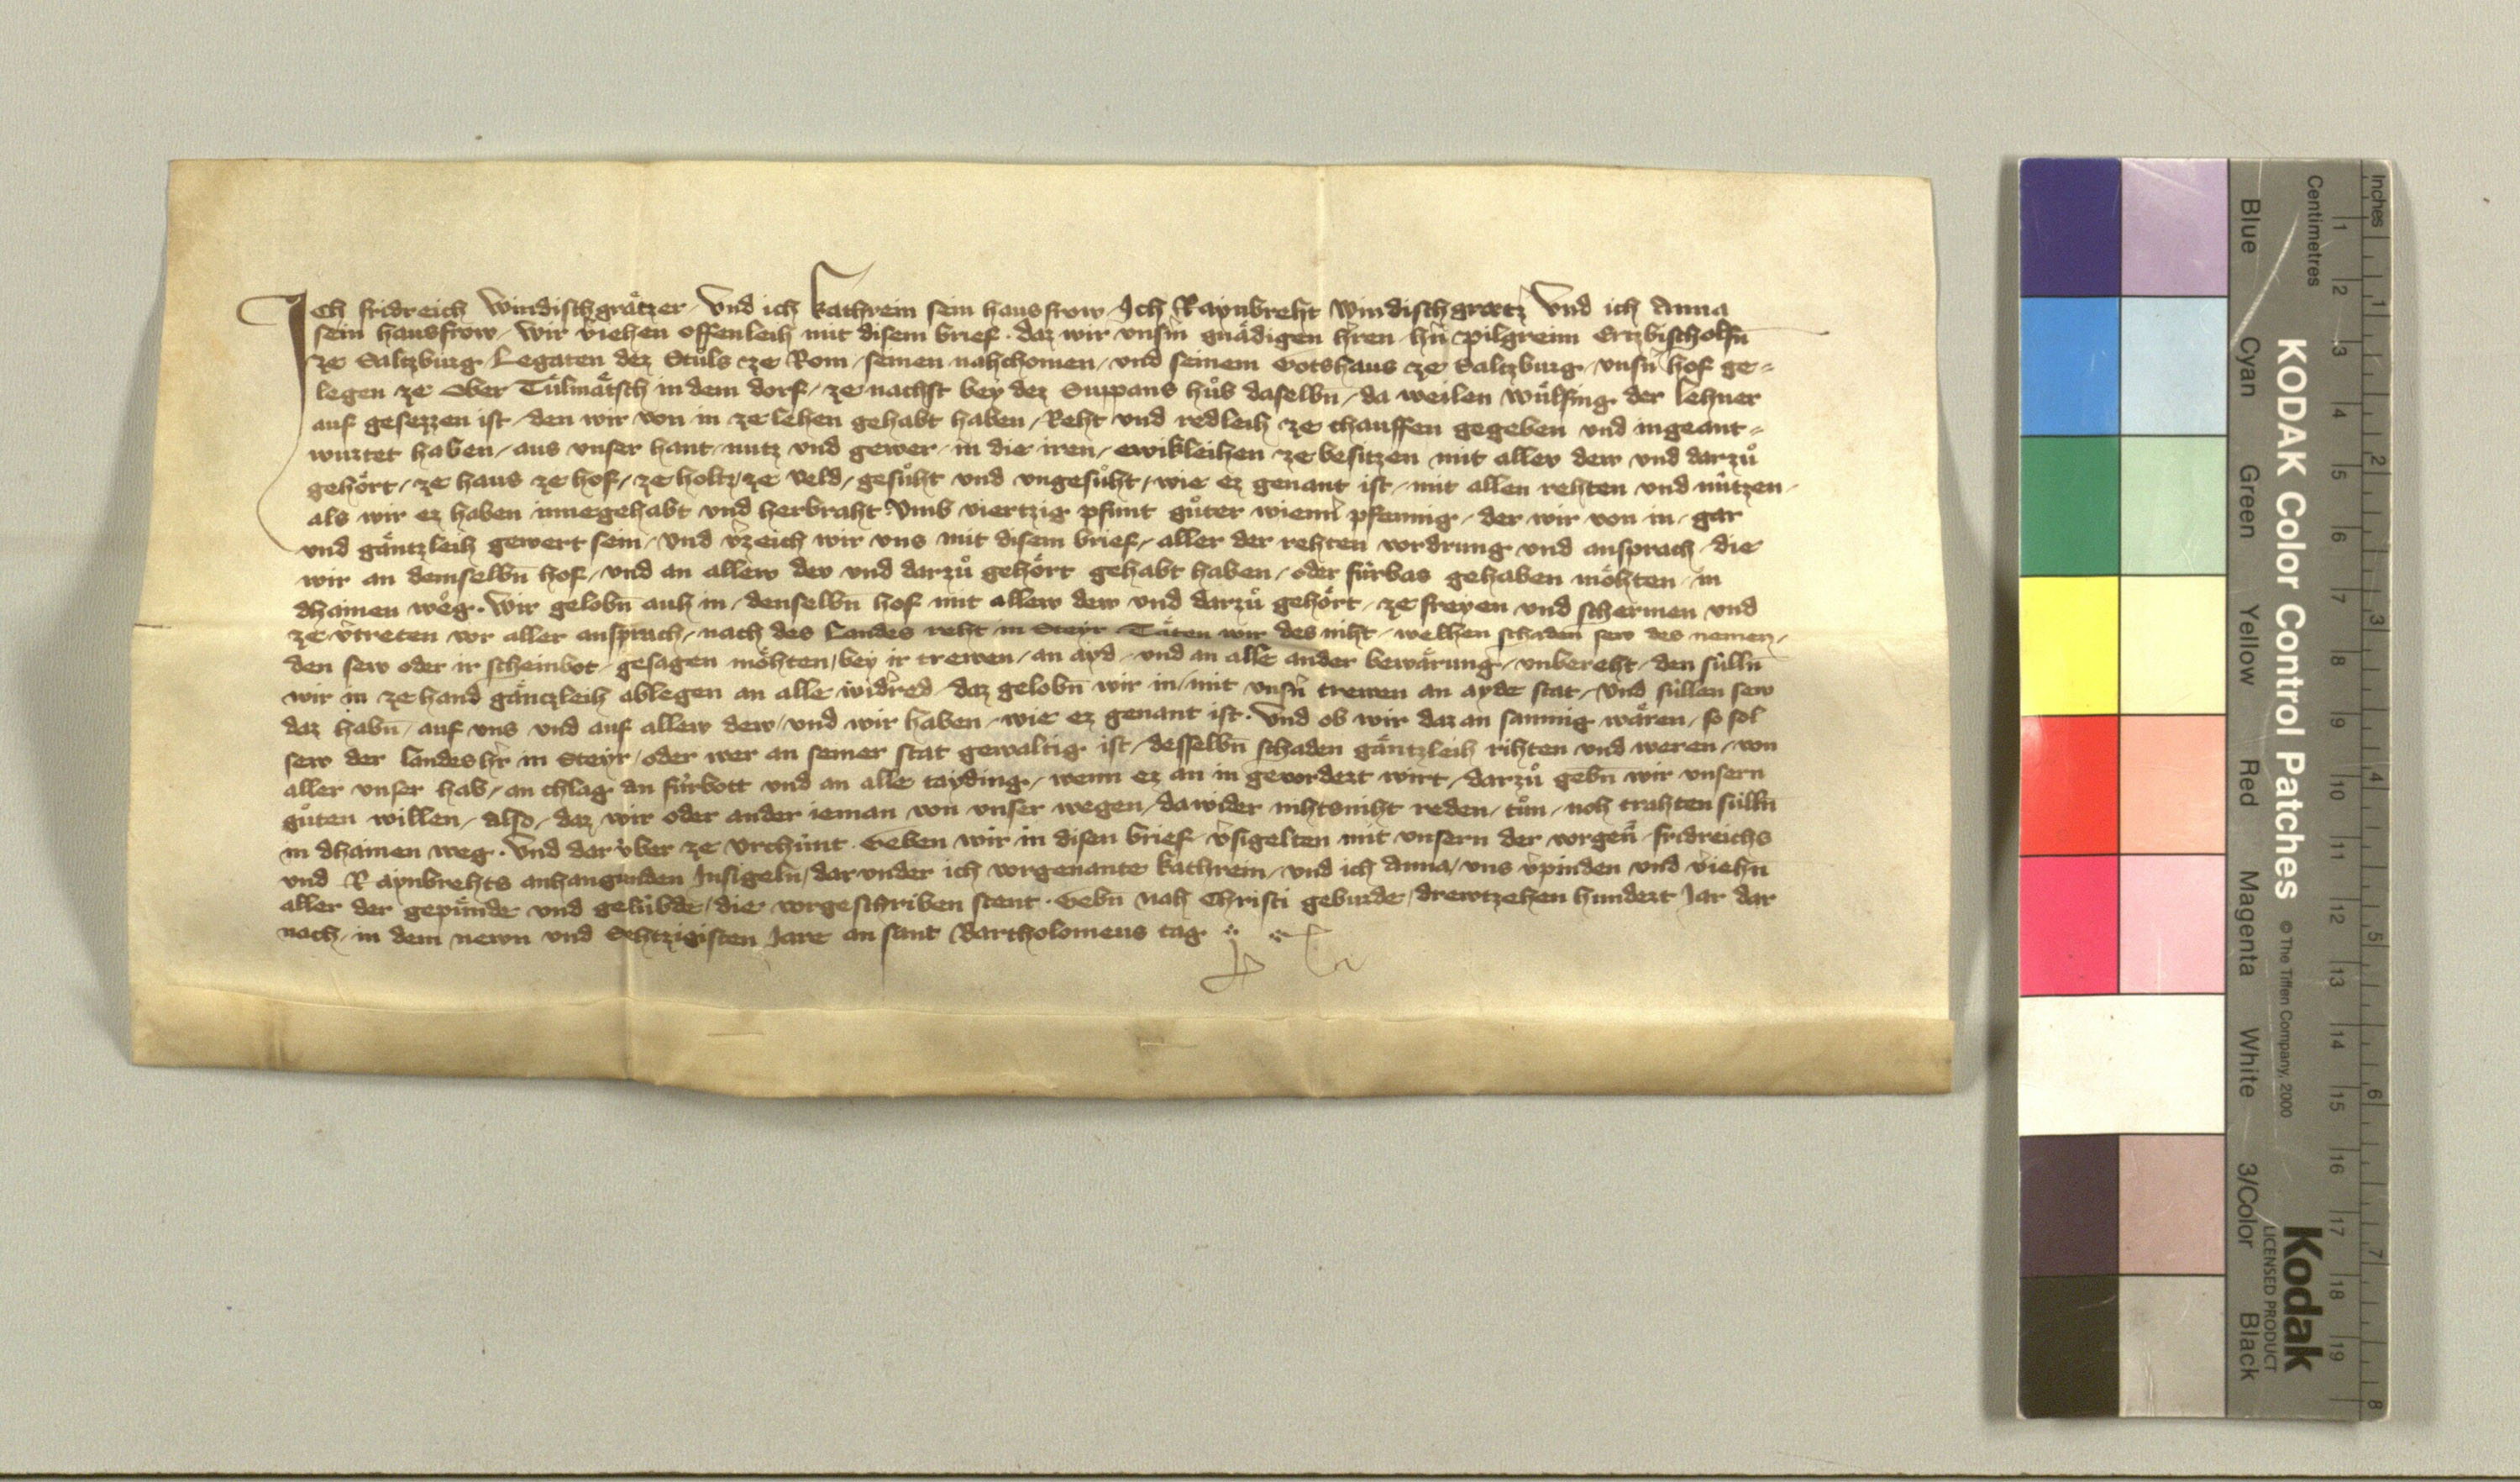 Ich fridreich Windischgrätzer / Und ich kathrein sein hausfrow / Ich Raynbreht Windischgraetz Und ich Anna
sein hausfrow / Wir viehen offenleih mit disem brief · daz wir unsm̄ gnädigen h̄ren / hn̄ pilgreim Ertzbischolfn̄
ze Saltzburg / Legaten dez Stůls ze Rom / seinen nahchomen / und seinem Gotshaus ze Saltzburg / unsn̄ hof ge=
legen ze Ober Tulmätsch in dem dorf / ze nachst bey dez Suppans hůs daselbn̄ / da weilen Wülfing der Lehner
auf gesezzen ist / den wir von in ze lehen gehabt haben / Reht und redleih ze chauffen gegeben und ingeant=
wurtet haben / aus unser hant / nutz und gewer / in die iren / ewikleihen ze besitzen mit allev dew und darzů
gehört / ze haus ze hof / ze holtz / ze veld / gesůht und ungesůht / wie ez genant ist / mit allen rehten und nützen /
als wir ez haben innegehabt und herbraht · Umb viertzig pfunt gůter wienn̄ pfennig / der wir von in / gar
und gäntzleih gewert sein / Und v̄zeich wir uns mit disem brief / aller der rehten vordrung und ansprach / die
wir an demselbn̄ hof / und an allew dev und darzů gehört gehabt haben / oder fürbas gehaben möhten / in
dhainen weg · Wir gelobn̄ auh in / denselbn̄ hof mit allew dew und darzů gehört / ze freyen und schermen und
ze v̄treten vor aller ansprach / nach des Landes reht in Steyr Täten wir des niht / welhen schaden sew des nemen /
den sew oder ir scheinbot / gesagen möhten / bey ir trewen / an ayd / und an alle ander bewärung / unbereht / den sülln̄
wir in ze hand gänczleih ablegen an alle widr̄red / daz gelobn̄ wir in / mit unsn̄ trewen an ayde stat / Und süllen sew
daz habn̄ / auf uns und auf allew dew / und wir haben / wie ez genant ist · Und ob wir daz an saumig wären / so sol
sew der Landeshr̄ in Steyr / oder wer an seiner stat gewaltig ist / desselbn̄ schaden gäntzleih rihten und weren / von
aller unser hab / an chlag an fürbott und an alle tayding / wenn ez an in gevordert wirt / darzů gebn̄ wir unsern
gůten willen / Also / daz wir oder ander ieman von unser wegen / dawider nihtsniht reden / tůn / noh trahten sülln̄
in dhainen weg · Und darüber ze Urchünt Geben wir in disen brief v̄sigelten mit unsern der vorgen̄ fridreichs
und Raynbrehts anhangunden Insigeln / darunder ich vorgenante kathrein / und ich Anna / uns v̄pinden und v̄iehn̄
aller der gepünde und gelübde / die vorgeschriben stent · Gebn̄ nah Christi geburde / drewtzehen hundert Jar dar
nach / in dem newn und Sehtzigisten Jare an sant Bartholomeus tag
KODAK Color Control Patches
© The Tiffen Company, 2000
Kodak
LICENSED PRODUCT
Inches
1 2 3 4 5 6 7 8
Centimetres
1 2 3 4 5 6 7 8 9 10 11 12 13 14 15 16 17 18 19
Blue Cyan Green Yellow Red Magenta White 3/Color Black